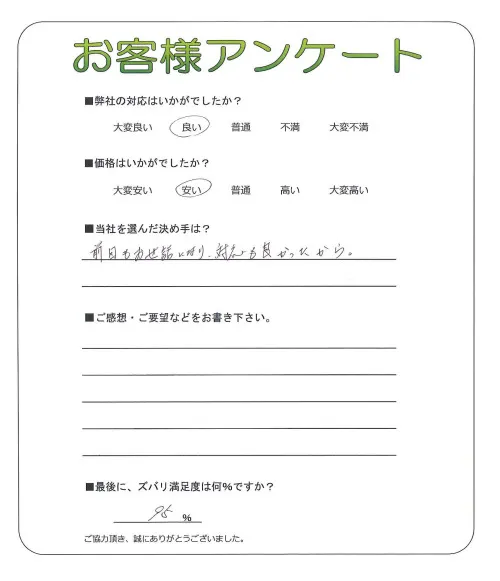 お客様アンケート
■弊社の対応はいかがでしたか？
大変良い 良い 普通 不満 大変不満
■価格はいかがでしたか？
大変安い 安い 普通 高い 大変高い
■当社を選んだ決め手は？
前回もお世話になり、対応も良かったから。
■ご感想・ご要望などをお書き下さい。
■最後に、ズバリ満足度は何%ですか？
95 %
ご協力頂き、誠にありがとうございました。